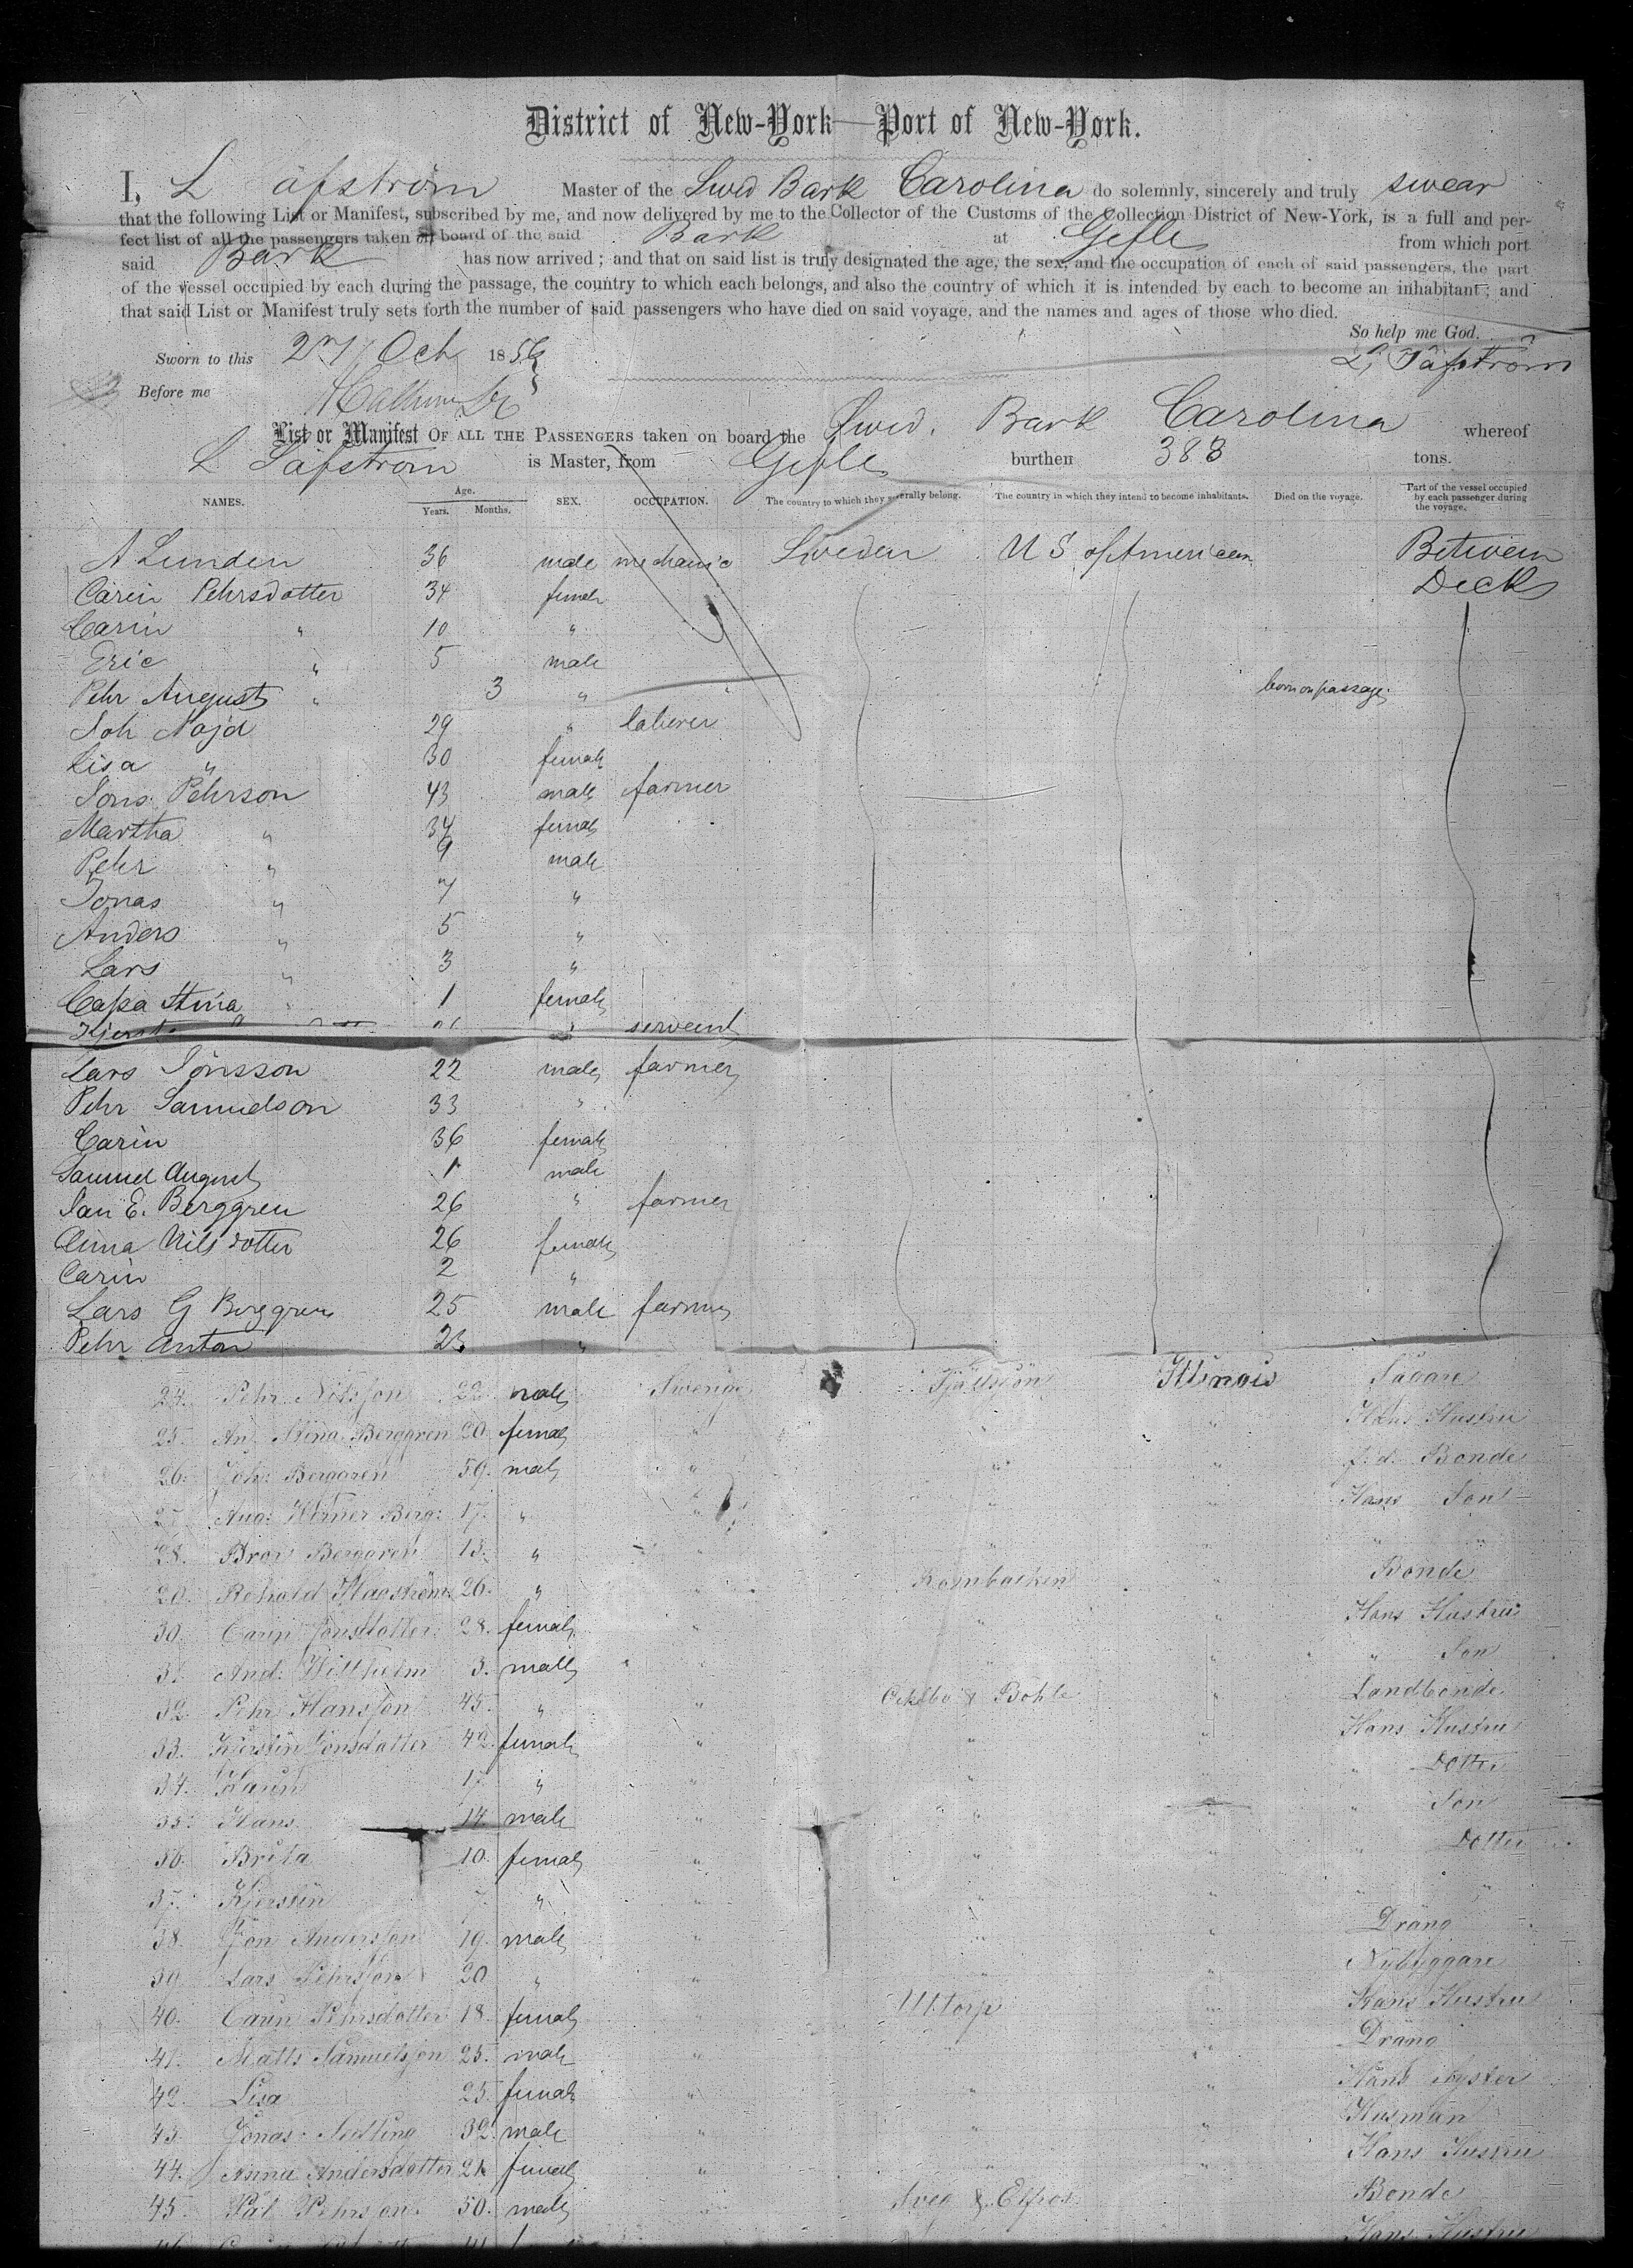 District of New-York—Port of New-York.
I, L Säfström Master of the Swed Bark Carolina do solemnly, sincerely and truly swear
that the following List or Manifest, subscribed by me, and now delivered by me to the Collector of the Customs of the Collection District of New-York, is a full and per-
fect list of all the passengers taken on board of the said Bark at Gefle from which port
said Bark has now arrived; and that on said list is truly designated the age, the sex, and the occupation of each of said passengers, the part
of the vessel occupied by each during the passage, the country to which each belongs, and also the country of which it is intended by each to become an inhabitant; and
that said List or Manifest truly sets forth the number of said passengers who have died on said voyage, and the names and ages of those who died.
So help me God.
Sworn to this Oct 1856
L, Säfström
Before me
List or Manifest OF ALL THE PASSENGERS taken on board the Swed. Bark Carolina whereof
L Säfström is Master, from Gefle burthen 383 tons.
NAMES. Age. Years. Months. SEX. OCCUPATION. The country to which they severally belong. The country in which they intend to become inhabitants. Died on the voyage. Part of the vessel occupied by each passenger during the voyage.
A Lunden 36 male mechanic Sweden U S of American Between
Carin Pehrsdotter 34 female Decks
Carin " 10 "
Eric " 5 male
Pehr August " 3 " born on passage
Joh Nöjd 29 " laborer
Lisa " 30 female
Jons Pehrson 43 male farmer
Martha " 34 female
Pehr " 9 male
Jonas " 7 "
Anders " 5 "
Lars " 3 "
Cajsa Stina " 1 female
" servant
Lars Jönsson 22 male farmer
Pehr Samuelson 33 "
Carin 36 female
Samuel August 1 male
Jan E. Berggren 26 " farmer
Anna Nils dotter 26 female
Carin 2 "
Lars G Berggren 25 male farmer
Pehr Anton 23 "
24. Pehr Nilsson 22 male Sverige Illinois
25. An. Stina Berggren 20. female " " Hans Hustru
26. Joh: Berggren 59. male " " " f.d. Bonde
27. Aug: Werner Berg: 17. " " " " Hans Son
28. Bror Berggren 13. " " " " " "
29. Hagström 26. " " " Bonde
30. Carin Jonsdotter 28. female " " " Hans Hustru
31. And: Wilhelm 3. male " " " " Son
32. Pehr Hansson 45. " " Ockelbo & Böhle " Landbonde
33. Kjerstin Jonsdotter 42. female " " " Hans Hustru
34. Karin 17. " " " " " Dotter
35. Hans 14. male " " " " Son
36. Brita 10. female " " " " Dotter
37. Kjerstin 7. " " " " " "
38. Jon Andersson 19. male " " " Dräng
39. Lars Pehrsson 20 " " " " Nybyggare
40. Carin Pehrsdotter 18. female " Ultorp " Hans Hustru
41. Matts Samuelsson 25. male " " " Dräng
42. Lisa 25. female " " " Hans Syster
43. Jonas 32. male " " " Husman
44. Anna Andersdotter female " " " Hans Hustru
45. Pål Pehrsson 50. male " Sveg & Elfros " Bonde
46. Hans Hustru